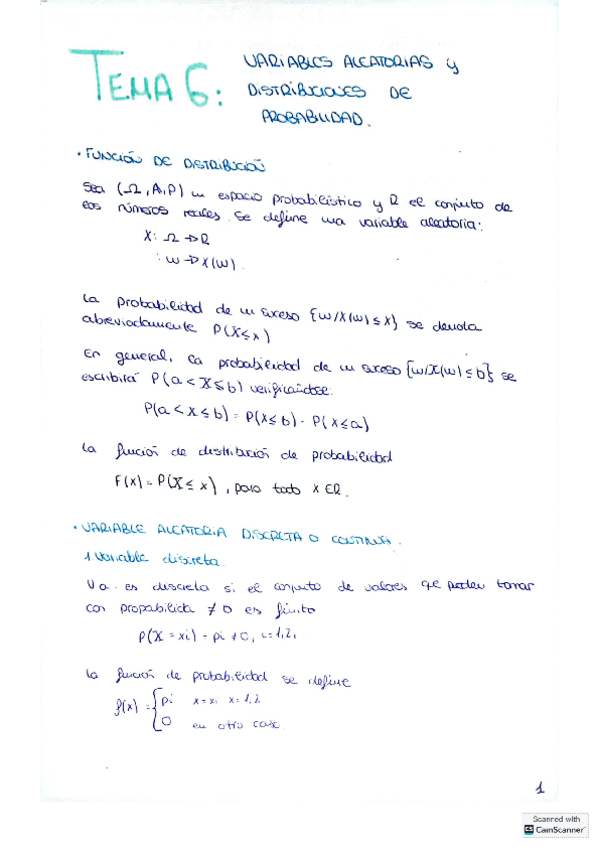 TEMA 6:
VARIABLES ALEATORIAS y
DISTRIBUCIONES DE
PROBABILIDAD.
• FUNCIÓN DE DISTRIBUCIÓN
Sea (Ω, A, P) un espacio probabilístico y R el conjunto de
los números reales. Se define una variable aleatoria:
X: Ω → R
: w → X(w)
La probabilidad de un suceso {w/X(w) ≤ x} se denota
abreviadamente P(X ≤ x)
En general, la probabilidad de un suceso {w/X(w) ≤ b} se
escribirá P(a < X ≤ b) verificándose:
P(a < X ≤ b) = P(X ≤ b) - P(X ≤ a)
La función de distribución de probabilidad
F(x) = P(X ≤ x), para todo x ∈ R.
• VARIABLE ALEATORIA DISCRETA O CONTINUA.
1. Variable discreta
Va. es discreta si el conjunto de valores que pueden tomar
con propabilida ≠ 0 es finito
P(X = xi) = pi ≠ 0, i = 1,2,
La función de probabilidad se define
f(x) = { pi x = xi x = 1,2
0 en otro caso.
1
Scanned with
CamScanner